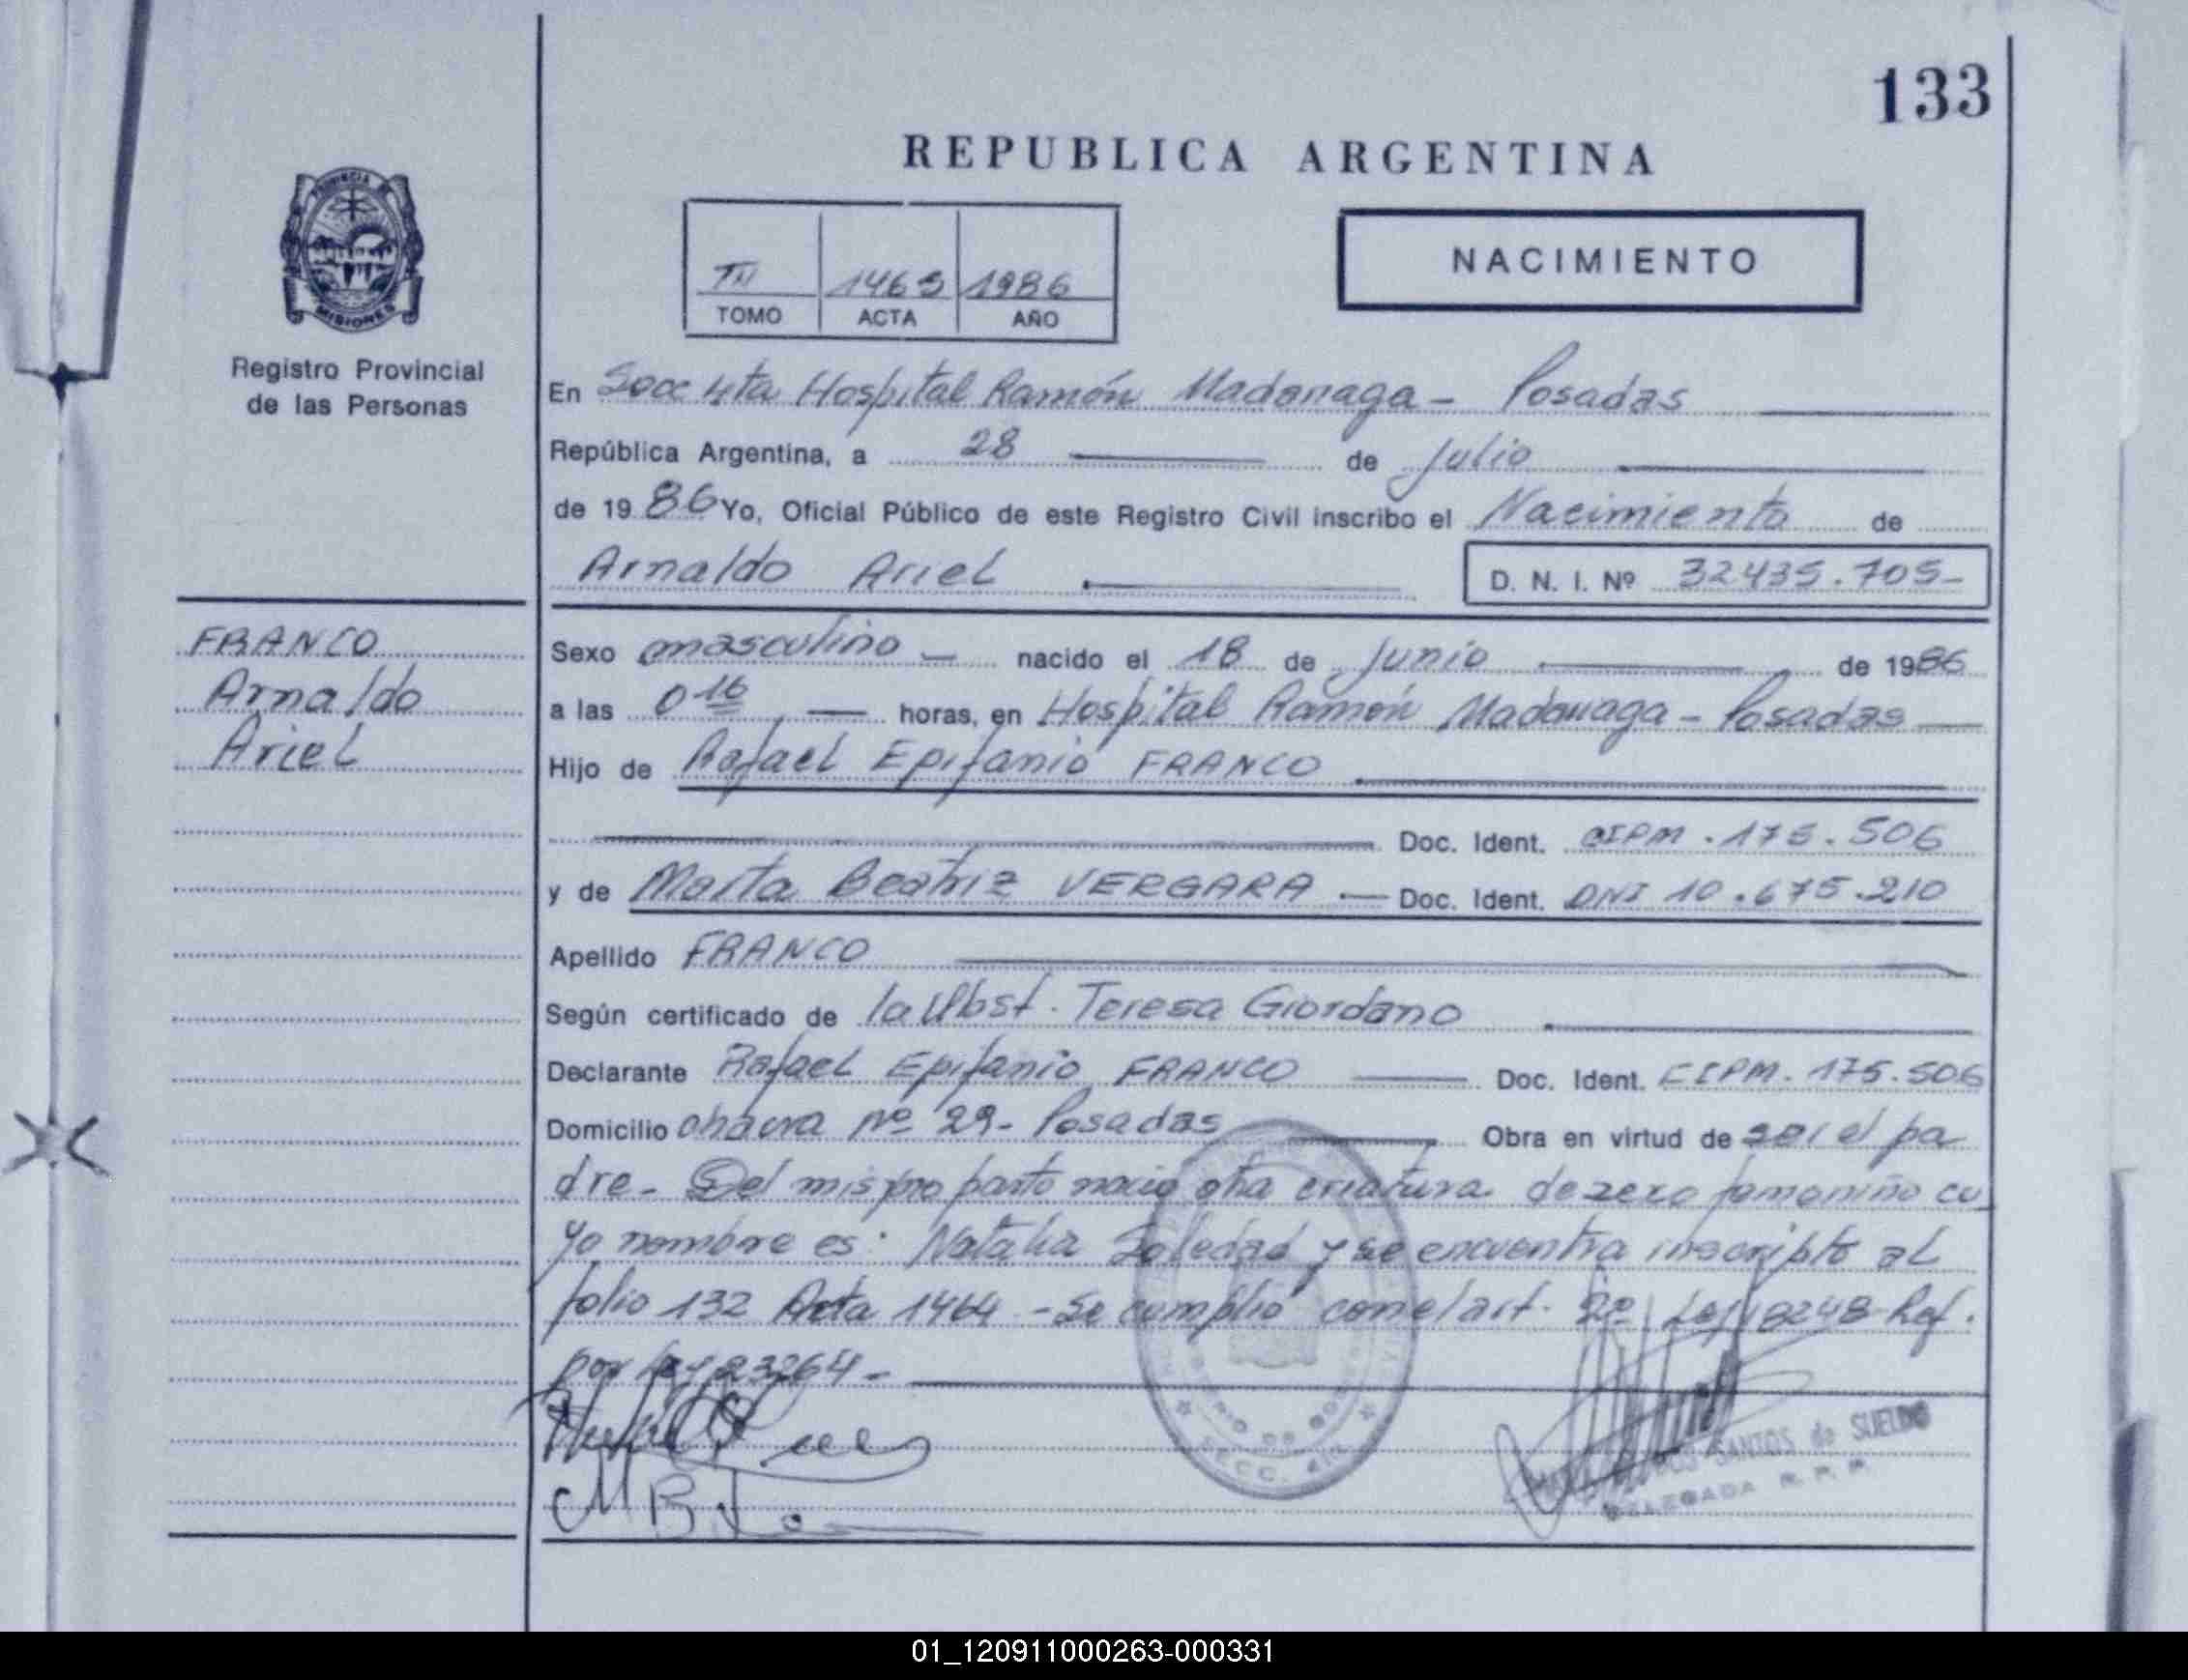 133
REPUBLICA ARGENTINA
PROVINCIA DE
MISIONES
Registro Provincial
de las Personas
NACIMIENTO
1465 1986
TOMO ACTA AÑO
En Secc 4ta Hospital Ramón Madariaga - Posadas
República Argentina, a 28 de Julio
de 1986 Yo, Oficial Público de este Registro Civil inscribo el Nacimiento de
Arnaldo Ariel D. N. I. Nº 32435.705-
FRANCO
Arnaldo
Ariel
Sexo masculino - nacido el 18 de Junio de 1986
a las 0 16 horas, en Hospital Ramón Madariaga - Posadas
Hijo de Rafael Epifanio FRANCO
Doc. Ident. CIPM . 175.506
y de Marta Beatriz VERGARA - Doc. Ident. DNI 10.675.210
Apellido FRANCO
Según certificado de la Obst. Teresa Giordano
Declarante Rafael Epifanio FRANCO Doc. Ident. CIPM. 175.506
Domicilio chacra nº 29- Posadas Obra en virtud de ser el pa
dre. Del mismo parto nacio otra criatura de sexo femenino cu
yo nombre es: Natalia Soledad y se encuentra inscripto al
folio 132 Acta 1464 - Se cumplio con el art. 2º Ley 18248 Ref.
por ley 23264 -
SECC. 4ta
SANTOS de SUELDO
DELEGADA R. P. P.
01_120911000263-000331